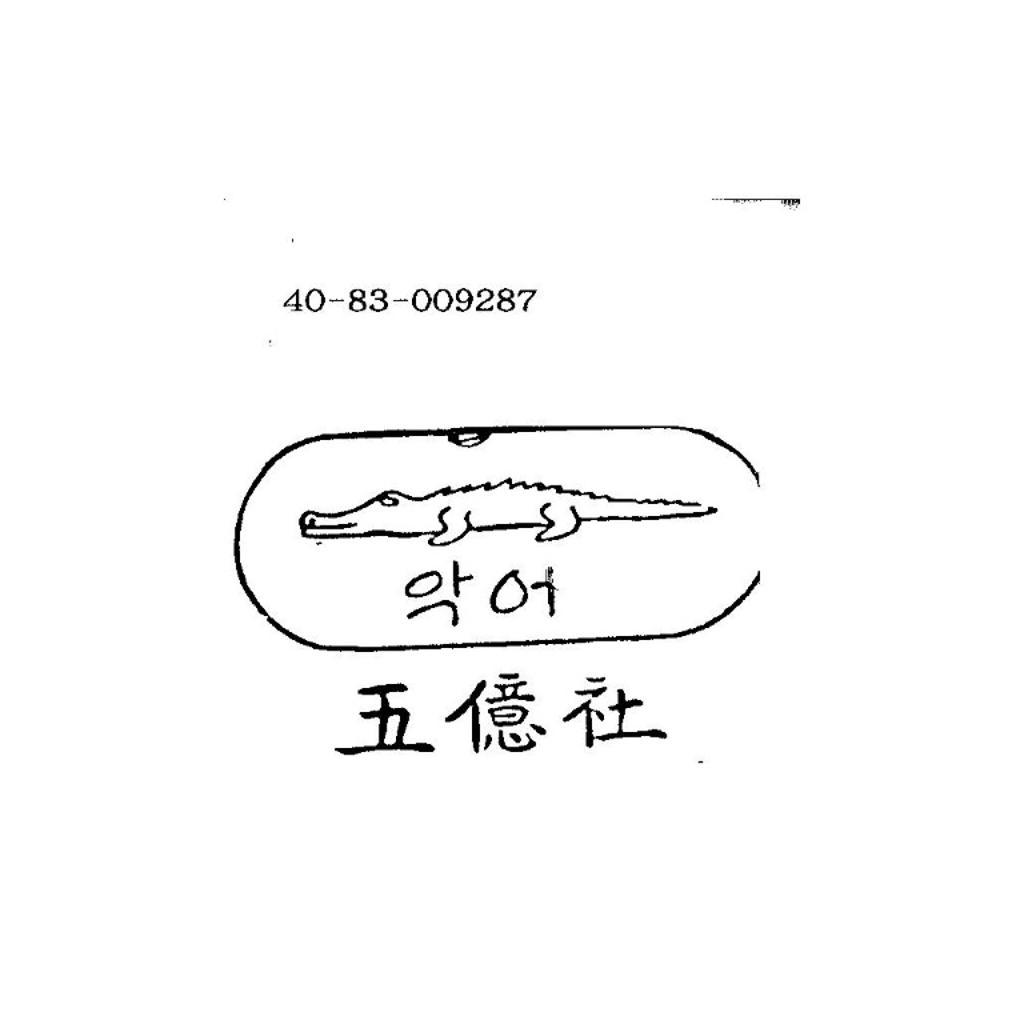 40-83-009287
악어
五億社